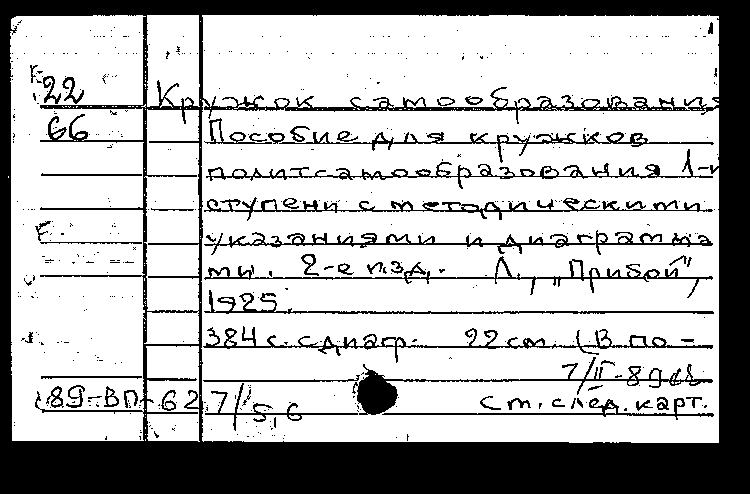 E22 Кружок самообразования
66 Пособие для кружков
политсамообразования 1-й
ступени с методическими
E. указаниями и диаграмма
ми. 2-е изд. Л., „Прибой",
1925.
384 с. с диагр. 22 см. (В по-
7/II-89
89-ВП-627/5,6 См. след. карт.